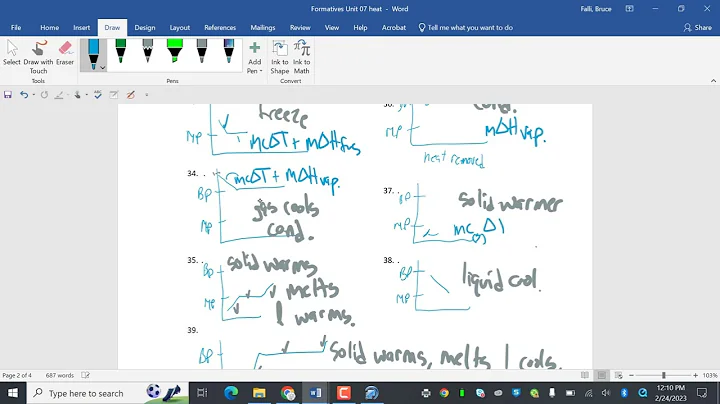 Formatives Unit 07 heat - Word
Falli, Bruce
File Home Insert Draw Design Layout References Mailings Review View Help Acrobat Tell me what you want to do Share
Select Draw with Touch Eraser Add Pen Ink to Shape Ink to Math
Tools Pens Convert
freeze
MP
mcΔT + mΔHfus
cond.
MP
mΔHvap.
heat removed
34. .
mcΔT + mΔHvap.
BP
MP
gas cools
cond.
37. .
solid warmer
MP
mc(s)ΔT
35. .
solid warms
BP
melts
MP
l warms.
38. .
BP
liquid cool.
MP
39.
BP
solid warms, melts l cools.
Page 2 of 4 687 words 103%
Type here to search
12:10 PM
2/24/2023